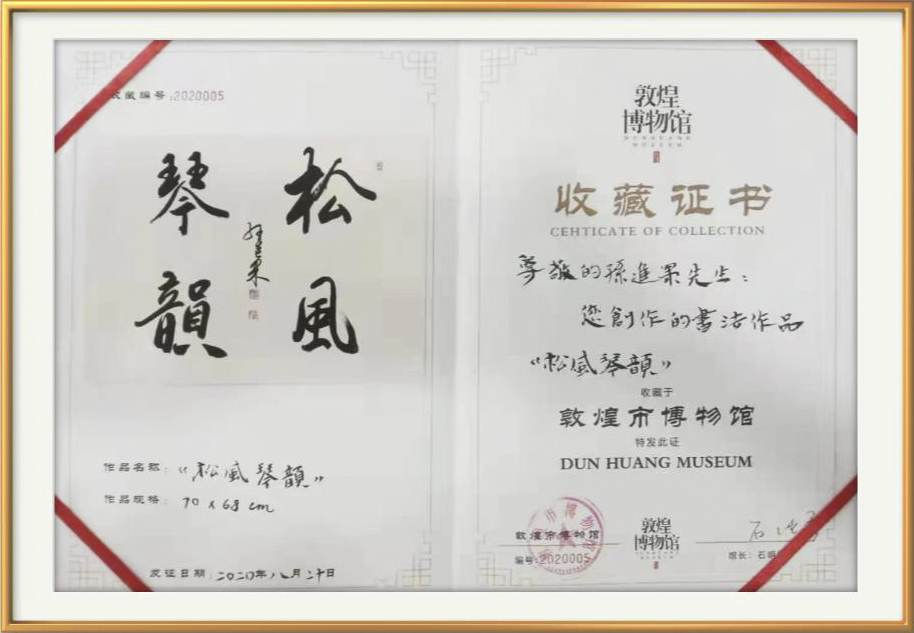 收藏编号:2020005
松風
琴韻
作品名称:“松風琴韻”
作品规格:70 x 68 cm
发证日期:二〇二〇年八月二十日
敦煌
博物馆
收藏证书
CEHTICATE OF COLLECTION
尊敬的孫進果先生:
您創作的書法作品
“松風琴韻”
收藏于
敦煌市博物馆
特发此证
DUN HUANG MUSEUM
敦煌市博物馆
编号:2020005
敦煌
博物馆
馆长:石明